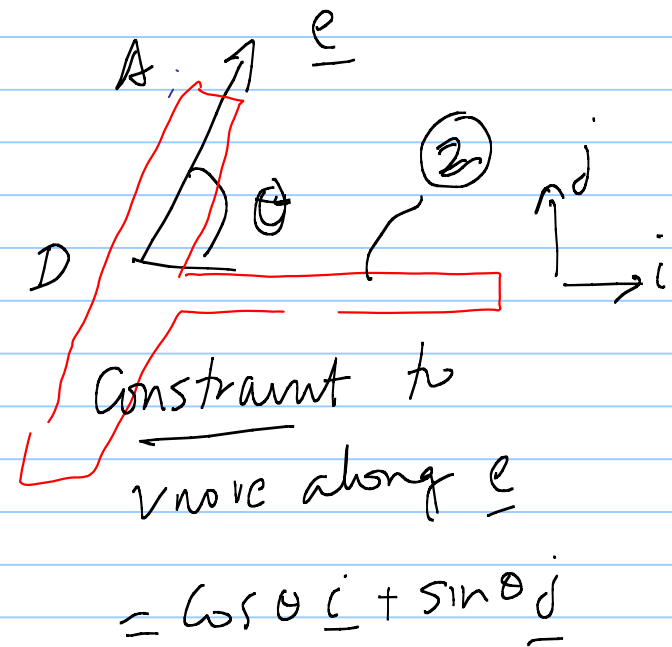 A
e
2
j
θ
D
i
Constraint to
move along e
= cos θ i + sin θ j